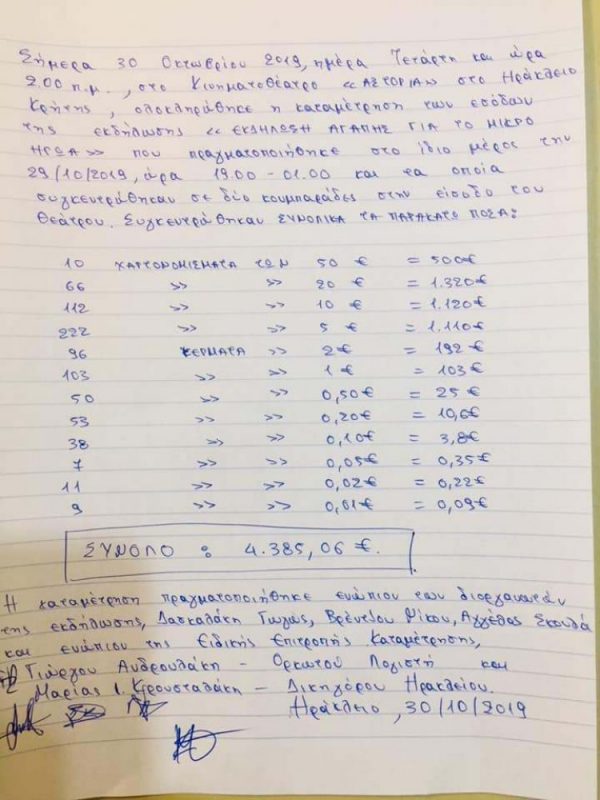 Σήμερα 30 Οκτωβρίου 2019, ημέρα Τετάρτη και ώρα
2.00 π.μ., στο Κινηματοθέατρο «ΑΣΤΟΡΙΑ» στο Ηράκλειο
Κρήτης, ολοκληρώθηκε η καταμέτρηση των εσόδων
της εκδήλωσης «ΕΚΔΗΛΩΣΗ ΑΓΑΠΗΣ ΓΙΑ ΤΟ ΜΙΚΡΟ
ΗΡΩΑ» που πραγματοποιήθηκε στο ίδιο μέρος την
29/10/2019, ώρα 19.00-01.00 και τα οποία
συγκεντρώθηκαν σε δύο κουμπαράδες στην είσοδο του
Θεάτρου. Συγκεντρώθηκαν ΣΥΝΟΛΙΚΑ ΤΑ ΠΑΡΑΚΑΤΩ ΠΟΣΑ:
10 ΧΑΡΤΟΝΟΜΙΣΜΑΤΑ ΤΩΝ 50 € = 500€
66 >> >> 20 € = 1.320€
112 >> >> 10 € = 1.120€
222 >> >> 5 € = 1.110€
96 ΚΕΡΜΑΤΑ >> 2€ = 192€
103 >> >> 1€ = 103€
50 >> >> 0,50€ = 25€
53 >> >> 0,20€ = 10,6€
38 >> >> 0,10€ = 3,8€
7 >> >> 0,05€ = 0,35€
11 >> >> 0,02€ = 0,22€
9 >> >> 0,01€ = 0,09€
ΣΥΝΟΛΟ : 4.385,06 €.
Η καταμέτρηση πραγματοποιήθηκε ενώπιον των διοργανωτών
της εκδήλωσης, Δασκαλάκη Γωγώς, Βρέντζου Νίκου, Αγγέλας Σκουλά
και ενώπιον της Ειδικής Επιτροπής Καταμέτρησης,
Γιώργου Ανδρουλάκη - Ορκωτού Λογιστή και
Μαρίας Ι. Κρουσταλάκη - Δικηγόρου Ηρακλείου.
Ηράκλειο, 30/10/2019